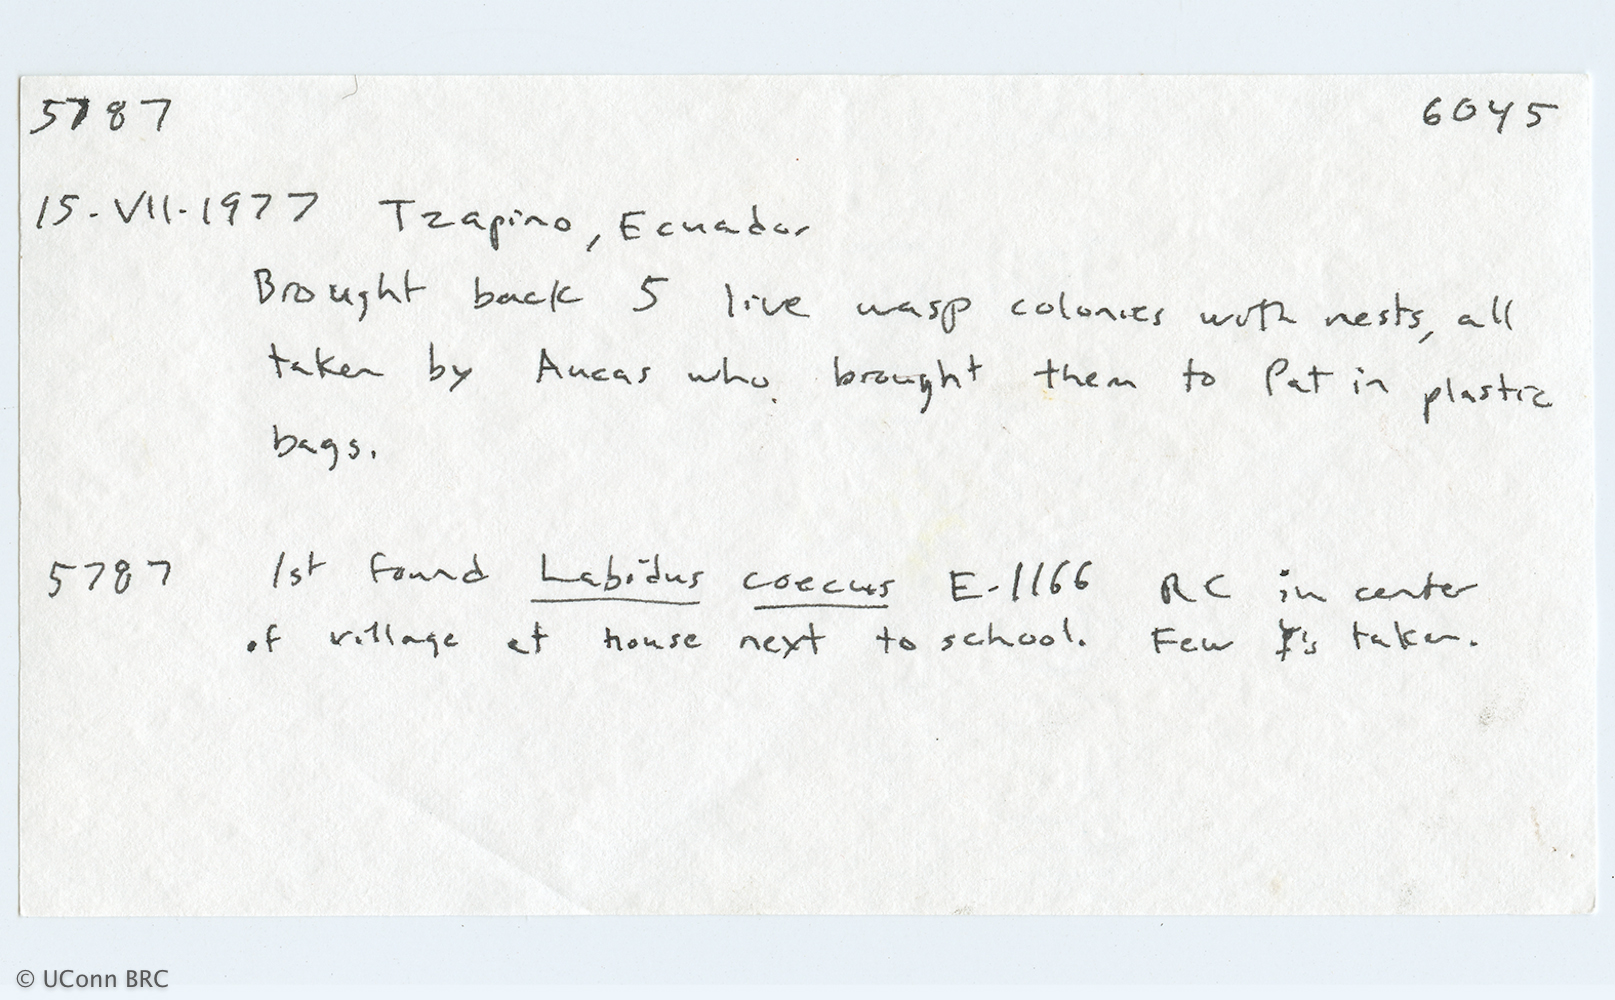 5787 6045
15-VII-1977 Tzapino, Ecuador
Brought back 5 live wasp colonies with nests, all
taken by Aucas who brought them to Pat in plastic
bags.
5787 1st found Labidus coecus E-1166 RC in center
of village at house next to school. Few ☿'s taken.
© UConn BRC